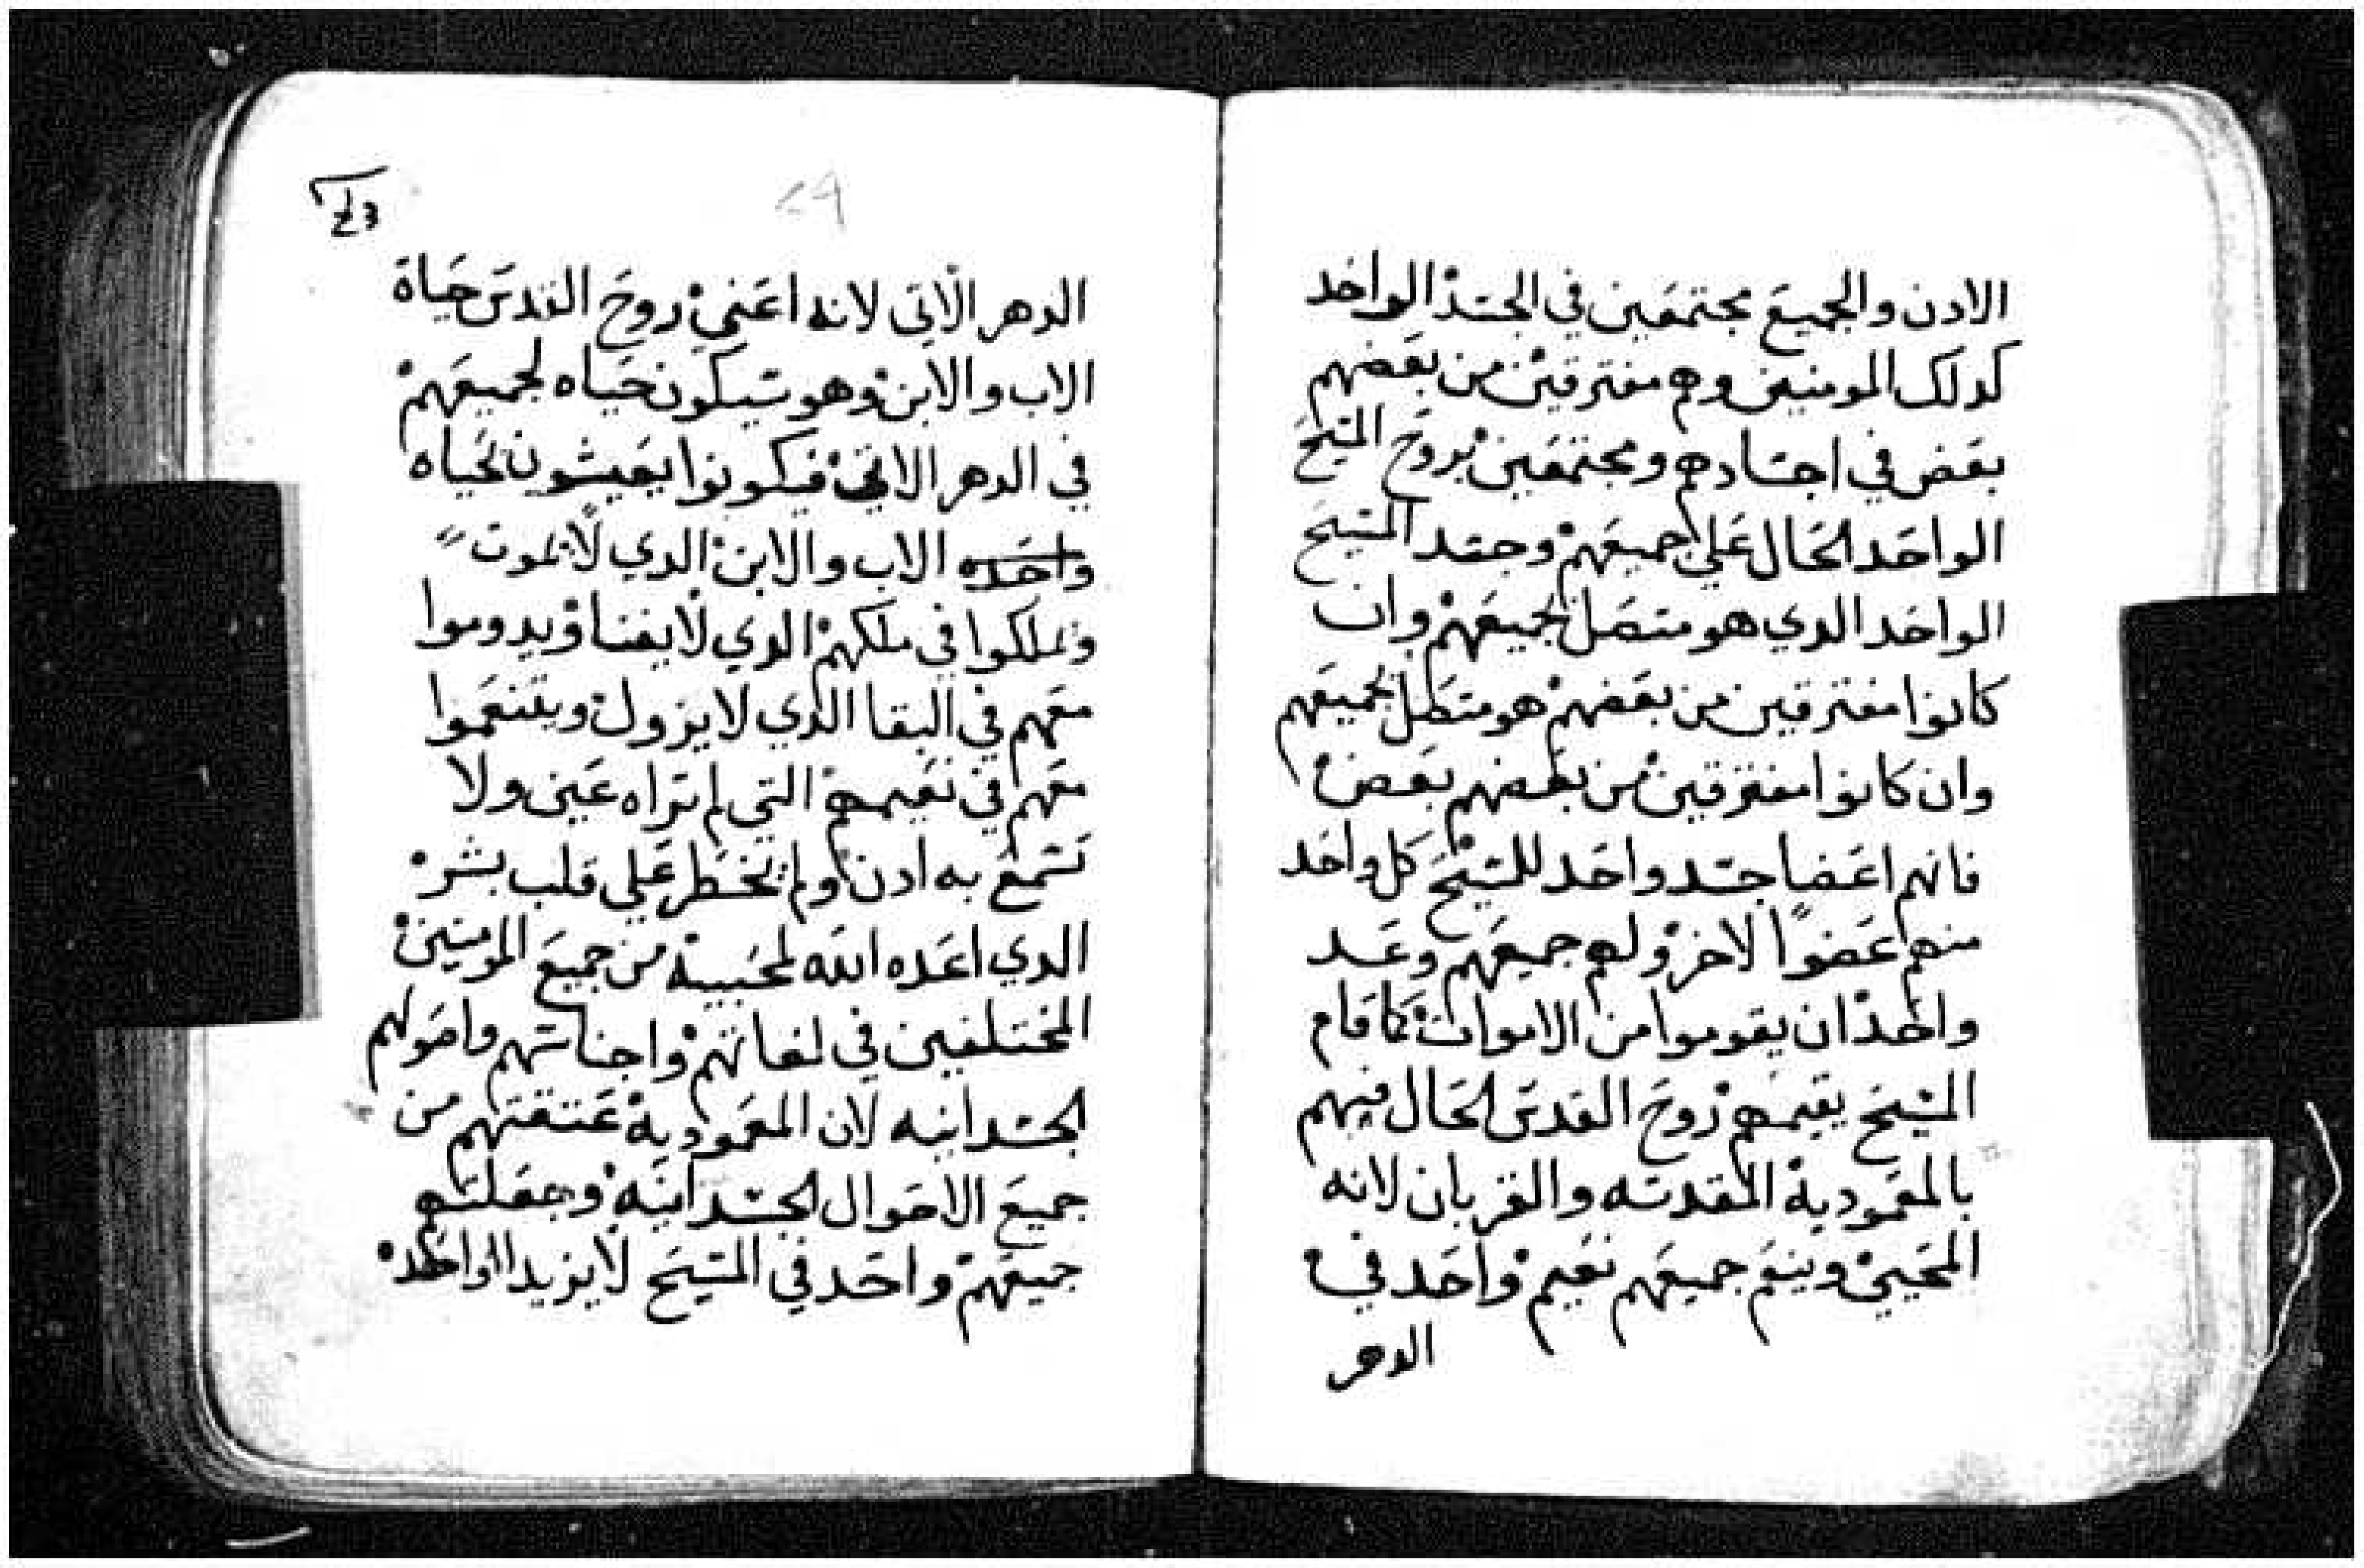 الادن والجميع مجتمعين في الجسد الواحد
كدلك المومنين وهم مفترقين من بعضهم
بعض في اجسادهم ومجتمعين بروح المسيح
الواحد الحال علي جميعهم وجسد المسيح
الواحد الدي هو متصل بجميعهم وان
كانوا مفترقين من بعضهم هو متصل بجميعهم
وان كانوا مفترقين من بعضهم بعض
فانهم اعضا جسد واحد للمسيح كل واحد
منهم عضوا لاخر ولهم جميعهم وعد
واحد ان يقوموا من الاموات كما قام
المسيح يقيمهم روح القدس الحال فيهم
بالمعمودية المقدسه والقربان لانه
المحيي وينعم جميعهم نعيم واحد في
الدهر
الدهر الاتي لانه اعني روح القدس حياة
الاب والابن وهو سيكون حياه لجميعهم
في الدهر الاتي فيكونوا يعيشون بحياه
واحده الاب والابن الدي لا يموت
ويملكوا في ملكهم الدي لا يفنا ويدوموا
معهم في البقا الدي لا يزول ويتنعموا
معهم في نعيمهم التي لم تراه عين ولا
تسمع به ادن ولم يخطر علي قلب بشر
الدي اعده الله لمحبيه من جميع المومنين
المختلفين في لغاتهم واجناسهم واصولهم
الجسدانيه لان المعمودية عتقتهم من
جميع الاحوال الجسدانيه وجعلتهم
جميعهم واحد في المسيح لا يزيد الواحد